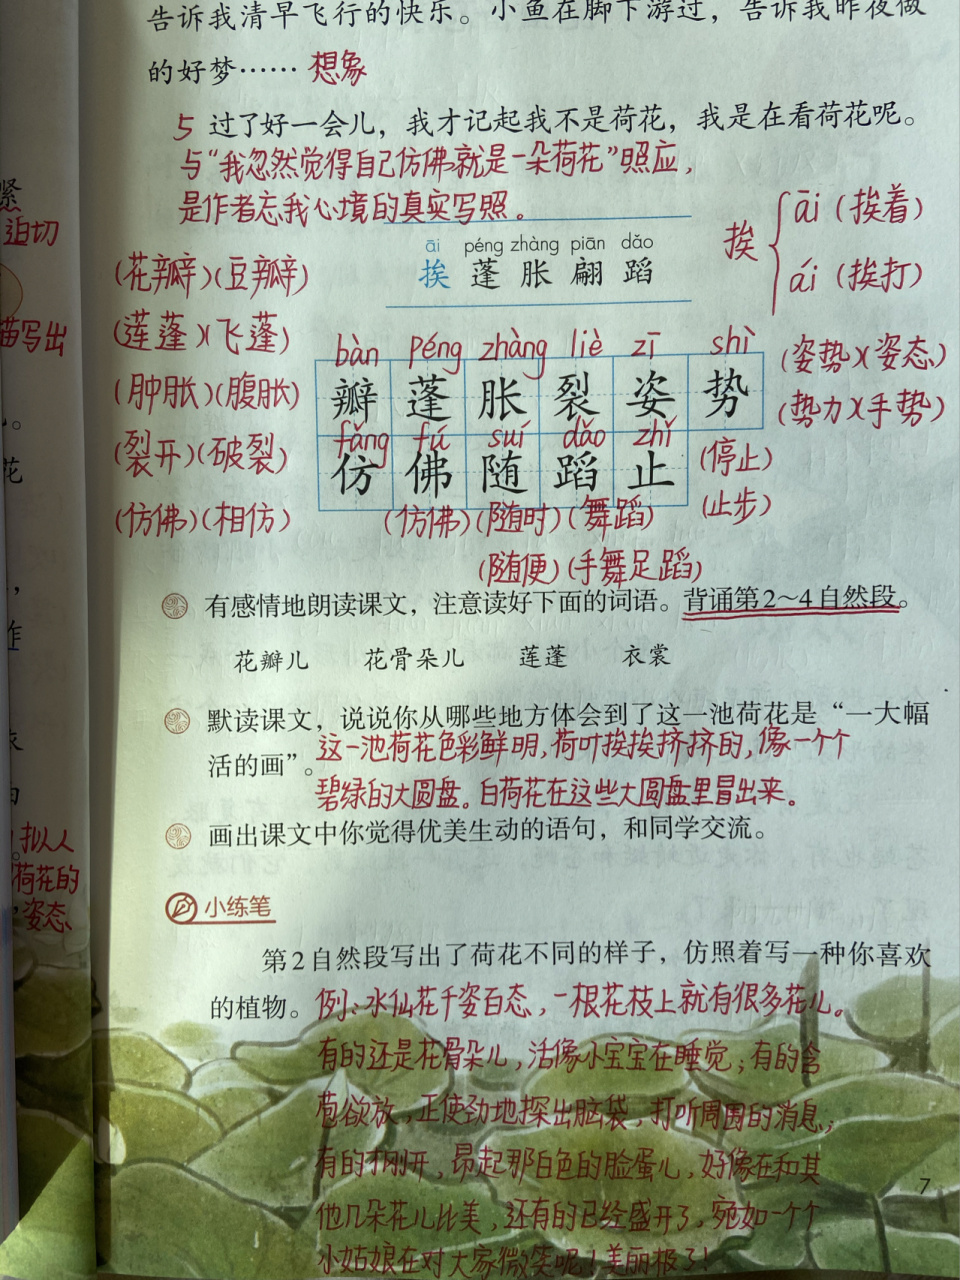 告诉我清早飞行的快乐。小鱼在脚下游过，告诉我昨夜做
的好梦…… 想象
5 过了好一会儿，我才记起我不是荷花，我是在看荷花呢。
与“我忽然觉得自己仿佛就是一朵荷花”照应，
是作者忘我心境的真实写照。
紧
迫切
描写出
挨 āi（挨着）
ái（挨打）
āi péng zhàng piān dǎo
挨 蓬 胀 翩 蹈
(花瓣)(豆瓣)
(莲蓬)(飞蓬)
(肿胀)(腹胀)
(裂开)(破裂)
(仿佛)(相仿)
bàn péng zhàng liè zī shì
瓣 蓬 胀 裂 姿 势
(姿势)(姿态)
(势力)(手势)
fǎng fú suí dǎo zhǐ
仿 佛 随 蹈 止
(停止)
(止步)
(仿佛)(随时)(舞蹈)
(随便)(手舞足蹈)
有感情地朗读课文，注意读好下面的词语。背诵第2～4自然段。
花瓣儿 花骨朵儿 莲蓬 衣裳
默读课文，说说你从哪些地方体会到了这一池荷花是“一大幅
活的画”。这一池荷花色彩鲜明，荷叶挨挨挤挤的，像一个个
碧绿的大圆盘。白荷花在这些大圆盘里冒出来。
画出课文中你觉得优美生动的语句，和同学交流。
拟人
荷花的
姿态
小练笔
第2自然段写出了荷花不同的样子，仿照着写一种你喜欢
的植物。例：水仙花千姿百态，一根花枝上就有很多花儿。
有的还是花骨朵儿，活像小宝宝在睡觉；有的含
苞欲放，正使劲地探出脑袋，打听周围的消息；
有的刚开，昂起那白色的脸蛋儿，好像在和其
他几朵花儿比美，还有的已经盛开了，宛如一个个
小姑娘在对大家微笑呢！美丽极了！
7